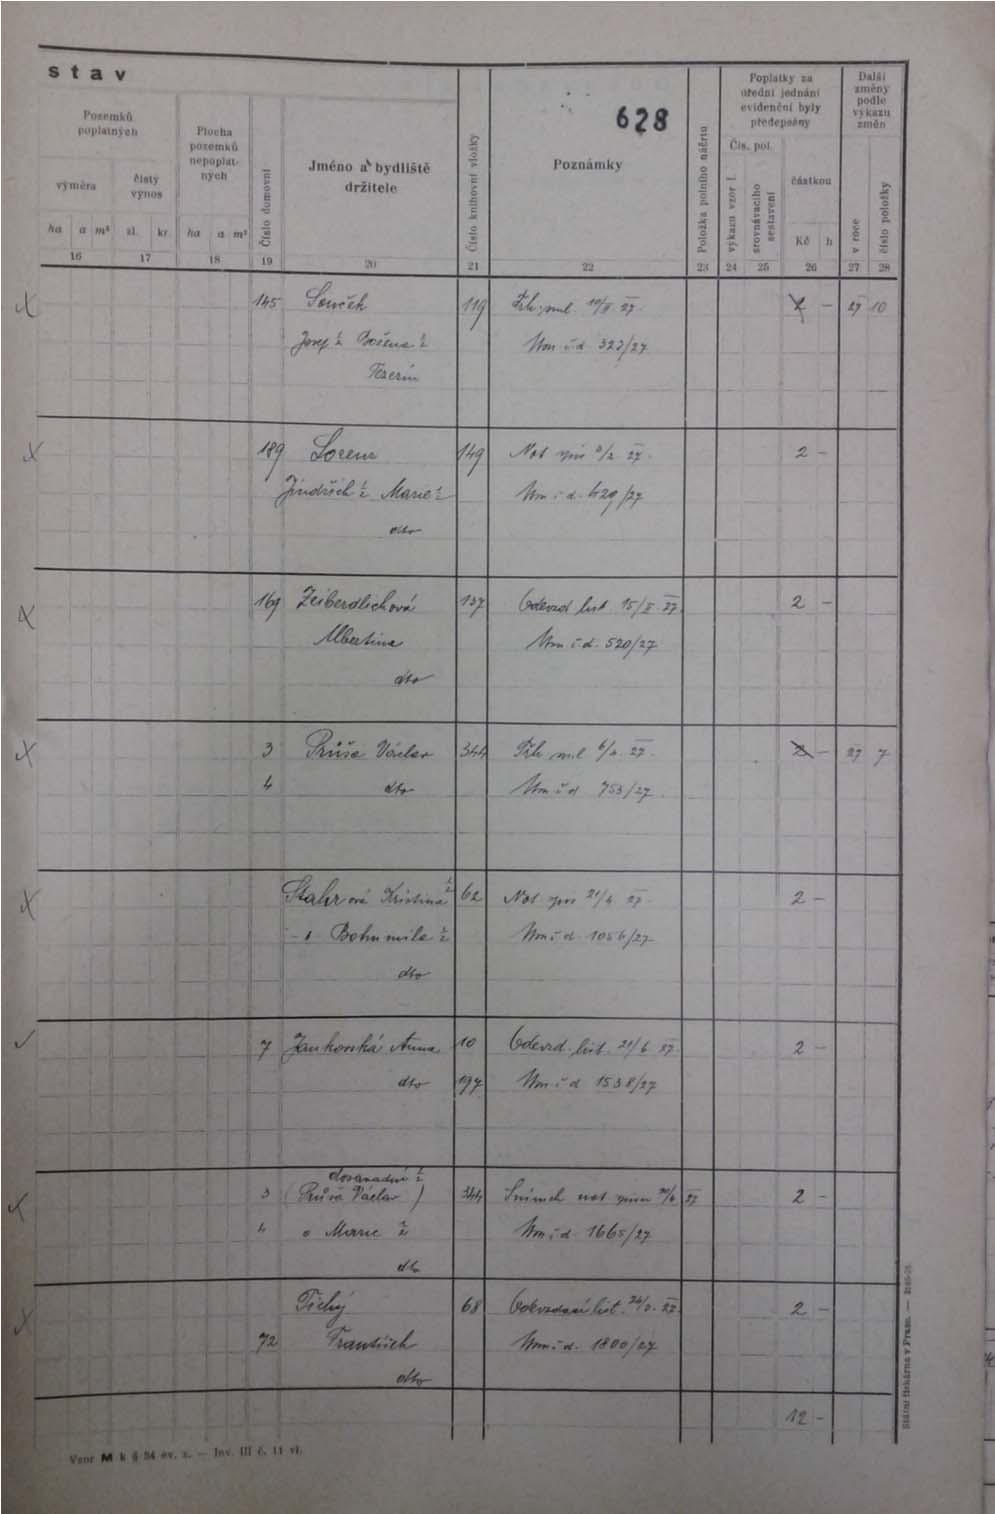 stav
628
Pozemků poplatných
výměra
čistý výnos
ha a m²
zl. kr.
Plocha pozemků nepoplatných
ha a m²
Číslo domovní
Jméno a bydliště držitele
Číslo knihovní vložky
Poznámky
Položka polního náčrtu
Poplatky za úřední jednání evidenční byly předepsány
Čís. pol.
výkazu vzor I.
srovnávacího sestavení
částkou
Kč h
Další změny podle výkazu změn
v roce
číslo položky
16 17 18 19 20 21 22 23 24 25 26 27 28
145 Souček 119 Trh. sml. 27. 2 – 27 10
Josef ½ Božena ½ Um č d 323/27
189 Lorenz 149 Not 27. 2 –
Jindřich ½ Marie ½ Um č d. 429/27
dto
169 Zeiberdlichová 137 Odevzd. list 15/II. 27. 2 –
Albertina Um č. d. 520/27
dto
3 Průša Václav 344 Trh. sml 27. 2 – 27 7
4 dto Um č d 753/27.
Stahrová Kristina ½ 62 Not 21/4 27. 2 –
Bohumila ½ Um č d. 1056/27
dto
7 Jankovská Anna 10 Odevzd. list. 21/6 27. 2 –
dto 197 Um č d 1538/27
dosavadní ½
3 (Průša Václav) 344 not 27 2 –
4 a Marie ½ Um č d. 1665/27
dto
Tichý 68 Odevzdací list. 27. 2 –
72 František Um č. d. 1800/27
dto
12 –
Vzor M k § 34 ev. z. — Inv. III č. 11 vl.
Státní tiskárna v Praze. —